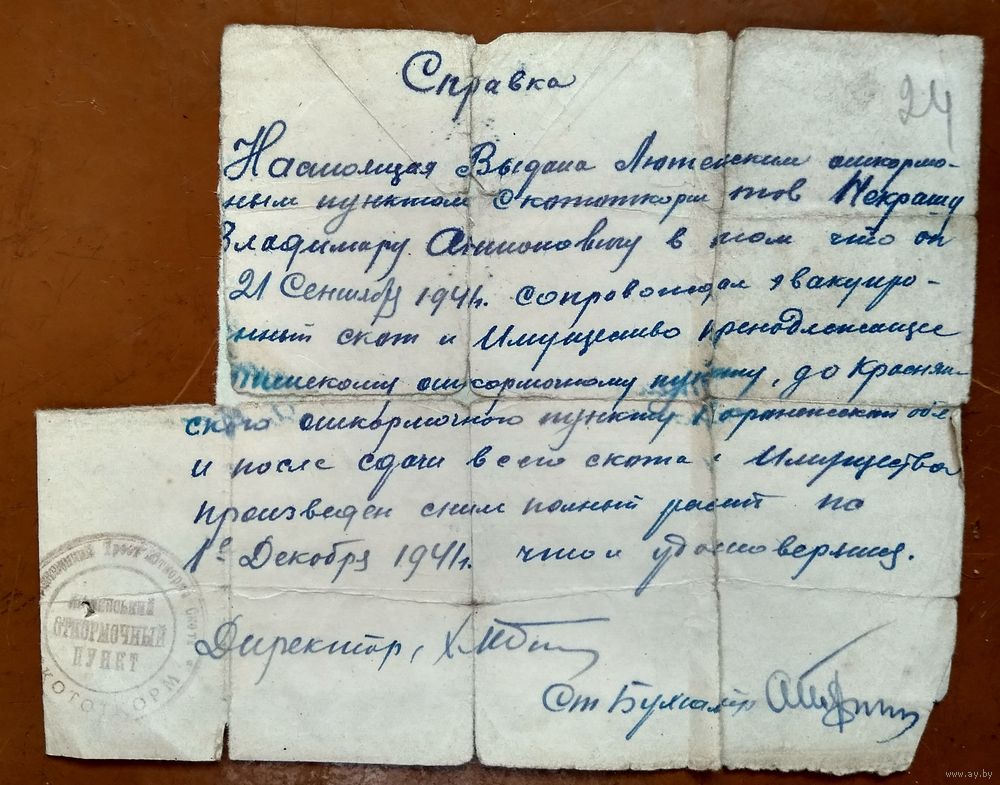 Справка
24
Настоящая Выдана Лютенским откормо-
чным пунктом Скототкорм тов Некрашу
Владимиру Антоновичу в том что он
21 Сентября 1941г. сопровождал эвакуиро-
нный скот и Имущество
откормочному пункту, до Краснян
ского откормочного пункта обл
и после сдачи всего скота и Имущества
произведен с ним полный расчёт по
1е Декабря 1941г. что и удостоверяется.
Директор,
Ст Бухгалтер
Трест Откорма Скота
ОТКОРМОЧНЫЙ
ПУНКТ
www.ay.by